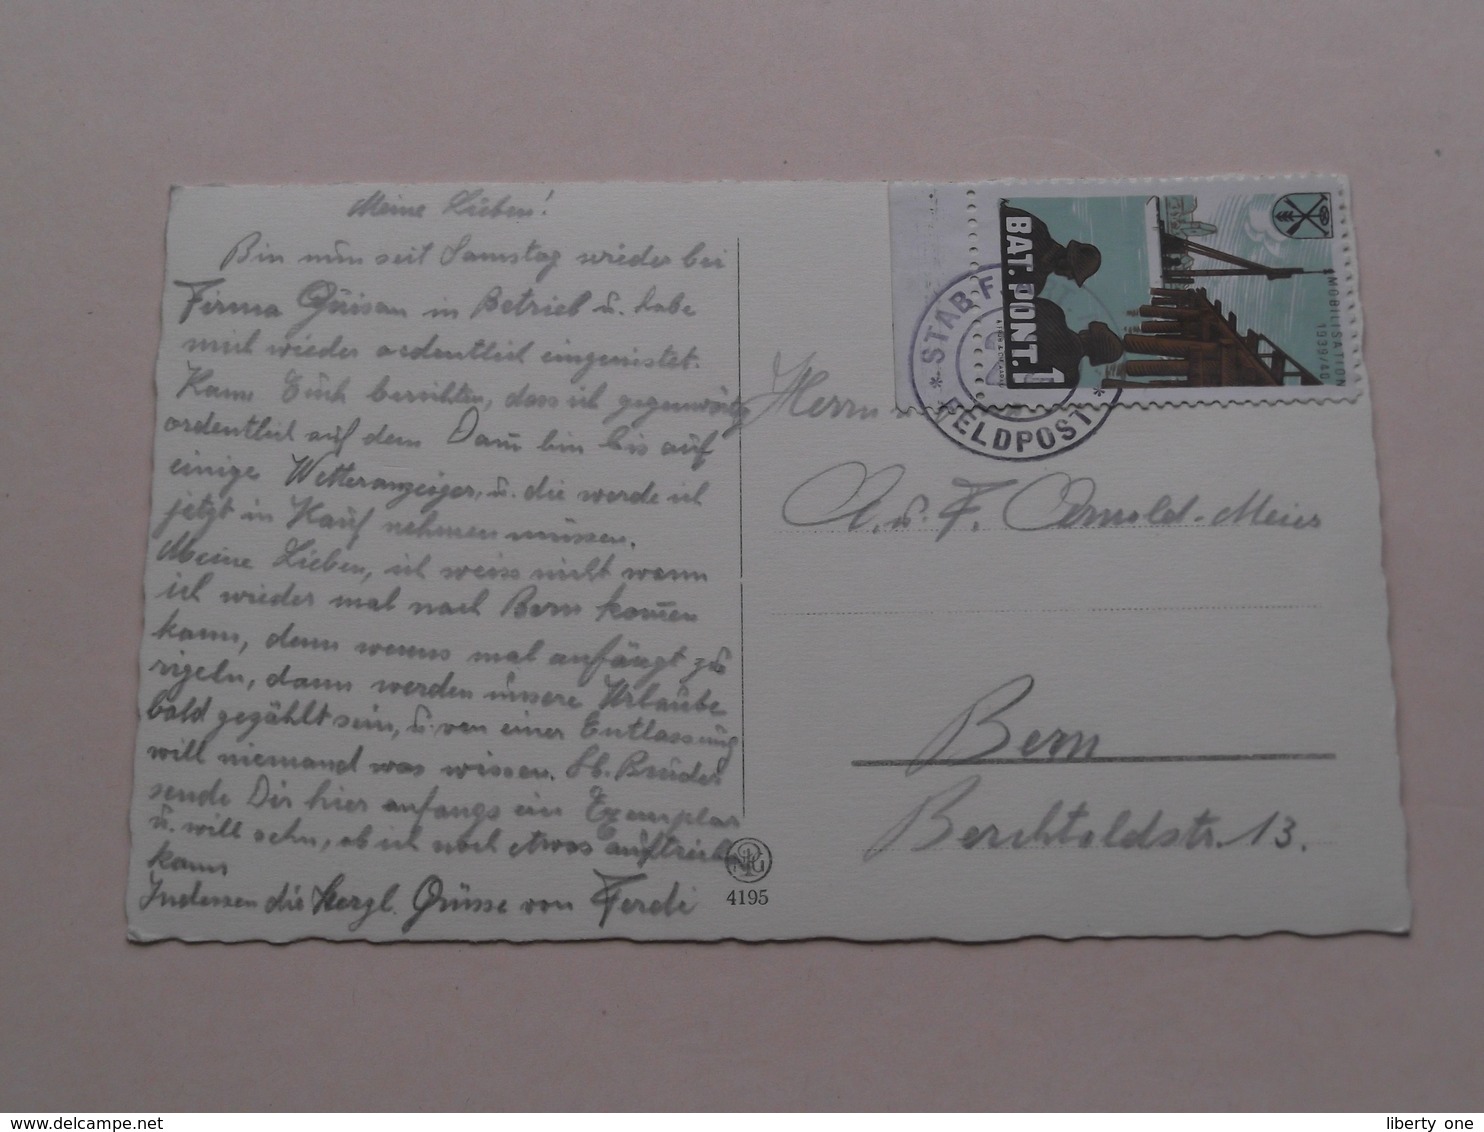 Meine Lieben!
Bin nun seit Samstag wieder bei
Firma Guisan in Betrieb u. habe
mich wieder ordentlich eingenistet.
Kann Euch berichten, dass ich gegenwärtig
ordentlich auf dem Damm bin bis auf
einige Wetteranzeiger, u. die werde ich
jetzt in Kauf nehmen müssen.
Meine Lieben, ich weiss nicht wann
ich wieder mal nach Bern kommen
kann, denn wenns mal anfängt zu
rigeln, dann werden unsere Urlaube
bald gezählt sein, u. von einer Entlassung
will niemand was wissen. Lb. Bruder
sende Dir hier anfangs ein Exemplar
u. will sehn, ob ich noch etwas auftreiben
kann
Indessen die Herzl. Grüsse von Ferdi
4195
BAT. PONT. 1
MOBILISATION
1939/40
* STAB F
FELDPOST *
Herrn
A. u. F. Arnold-Meier
Bern
Berchtoldstr. 13.
www.delcampe.net
liberty one